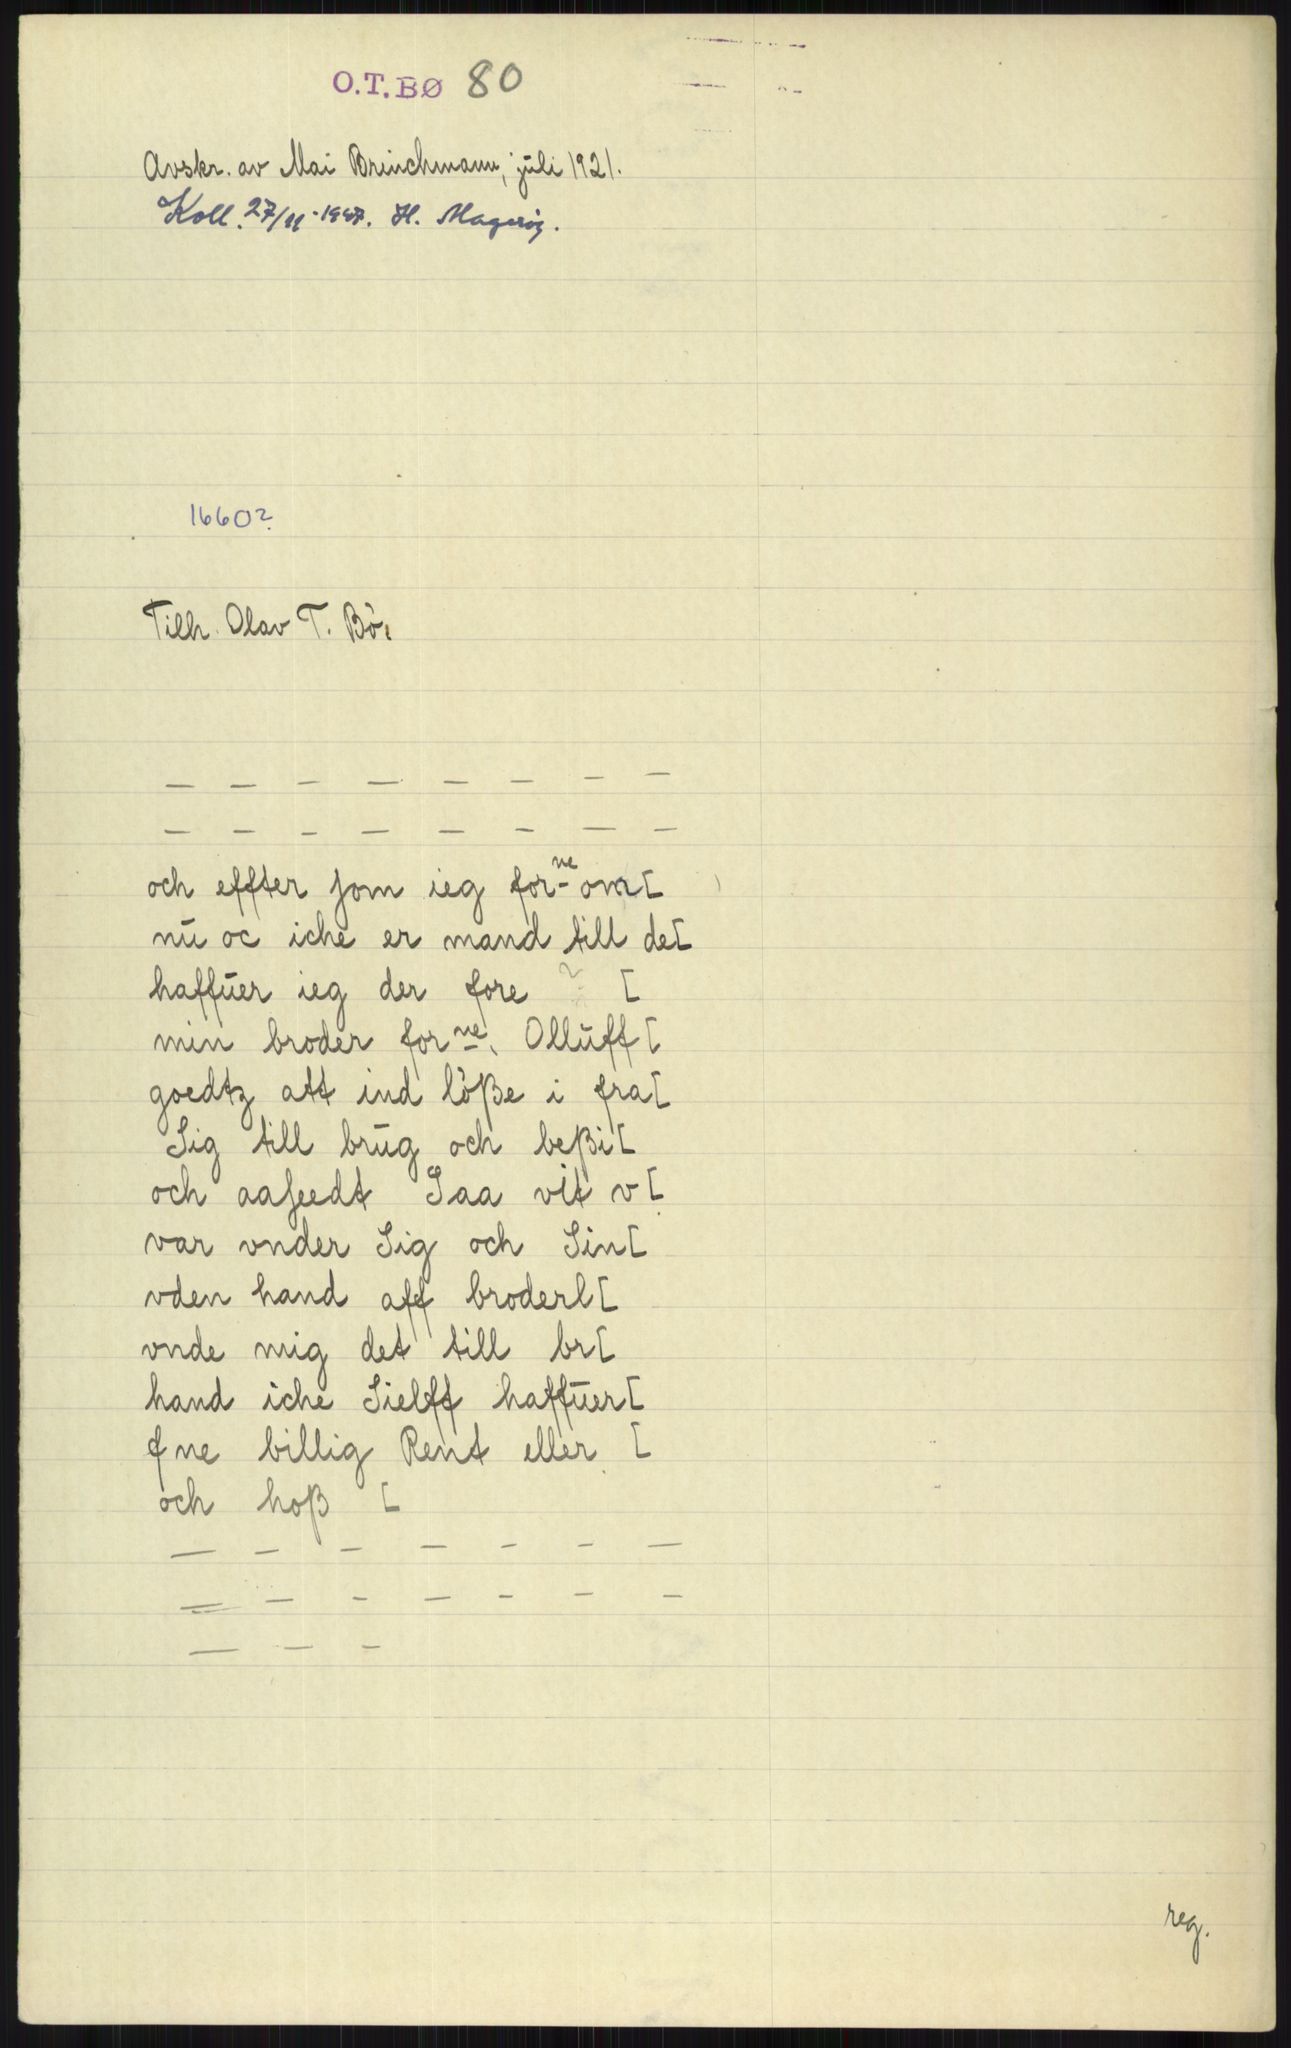 O.T.BØ 80
Avskr. av Mai Brinchmann, juli 1921.
Koll. 27/11-1947. H. Magerøy.
1660?
Tilh. Olav T. Bö.
— — — — — — — —
— — — — — — — —
och effter som ieg forne om[
nu oc iche er mand till de[
haffuer ieg der fore ? [
min broder forne. Olluff [
goedtz att ind lösse i fra[
Sig till brug och beßi[
och aaseedt Saa vit v[
var vnder Sig och Sin[
vden hand aff broderl[
vnde mig det till br[
hand iche Sielff haffuer[
fne billig Rent eller [
och hoß [
— — — — — — —
— — — — — — —
— — —
reg.